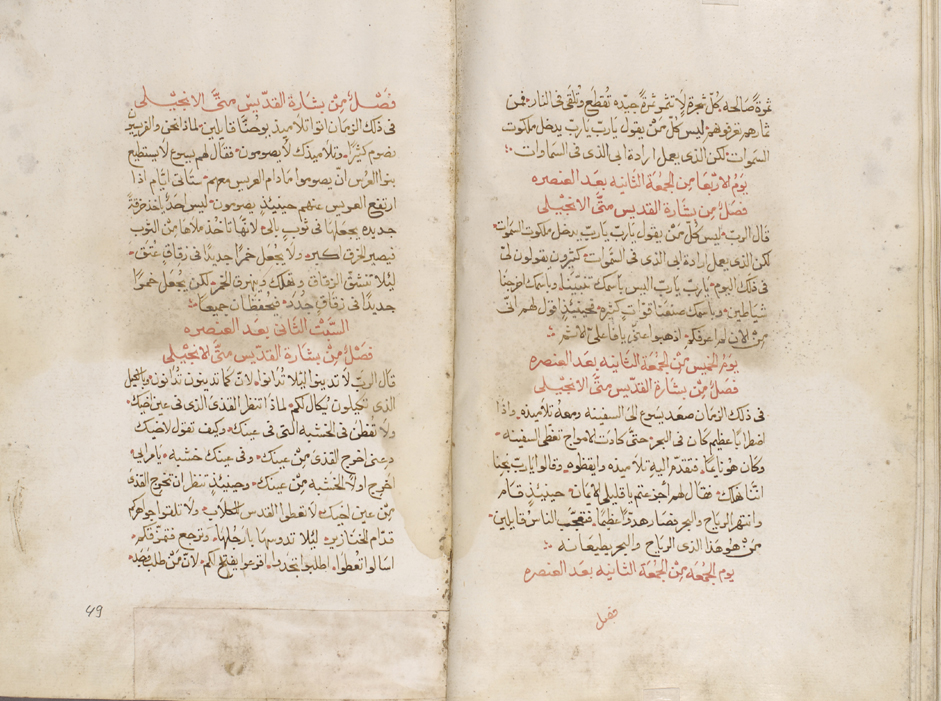 ثمرةً صالحه كلّ شجرة لا تثمر ثمرةً جيّده تُقطع وتلقى فى النار فمن
ثمارهم تعرفونهم ليس كلّ مَنْ يقول ياربّ ياربّ يدخل ملكوت
السموات لكن الذى يعمل ارادة ابى الذى فى السماوات
يوم الاربعا من الجمعة الثانيه بعد العنصره
فصلٌ من بشارة القديس متى الانجيلى
قال الرب ليس كلّ مَنْ يقول ياربّ ياربّ يدخل ملكوت السموات
لكن الذى يعمل ارادة ابى الذى فى السموات كثيرون يقولون لى
فى ذلك اليوم ياربّ ياربّ اليس باسمك تنبّينا وباسمك اخرجنا
شياطين وباسمك صنعنا قوّات كثيره فحينيذٍ اقول لهم انى
من الان لم اعرفكم اذهبوا عنّى يا فاعلى الاثم
يوم الخميس من الجمعة الثانيه بعد العنصره
فصلٌ من بشارة القدّيس متّى الانجيلى
فى ذلك الزمان صعد يسوع الى السفينه ومعه تلاميذه واذا
اضطرابًا عظيم كان فى البحر حتّى كادت الامواج تغطّى السفينه
وكان هو نايمًا فتقدّم اليه تلاميذه وايقظوه وقالوا ياربّ نجنا
انّنا نهلك فقال لهم اجزعتم يا قليلى الامان حينيذٍ قام
وانتهر الرياح والبحر فصار هدوًّا عظيمًا فتعجّب الناس قايلين
مَنْ هو هذا الذى الرياح والبحر يطيعانه
يوم الجمعه من الجمعة الثانيه بعد العنصره
فصل
فصْلٌ من بشارة القدّيس متّى الانجيلى
فى ذلك الزمان اتوا تلاميذ يوحنّا قايلين لماذا نحن والفريسيون
نصوم كثيرًا وتلاميذك لا يصومون فقال لهم يسوع لا يستطيع
بنوا العرس ان يصوموا ما دام العريس معهم ستاتى ايّام اذا
ارتفع العريس عنهم حينيذٍ يصومون ليس احدٌ ياخذ خرقةً
جديده يجعلها فى ثوبٍ بالى لانّها تاخذ ملاها من الثوب
فيصير الخرق اكبر ولا يجعل خمرًا جديدًا فى زقاقٍ عتق
ليلا تنشقّ الزقاق وتهلك ويهرق الخمر لكن يجعل خمرًا
جديدًا فى زقاقٍ جُدُد فيحفظان جميعًا
السبت الثانى بعد العنصره
فصْلٌ من بشارة القدّيس متّى الانجيلى
قال الربّ لا تدينوا ليلا تدانوا لان كما تدينون تدانون وبالكيل
الذى تكيلون يكال لكم لماذا تنظر القذى الذى فى عين اخيك
ولا تفطن فى الخشبه التى فى عينك وكيف تقول لاخيك
دعنى اخرج القذى من عينك وفى عينك خشبه يا مرايى
اخرج اولًا الخشبه من عينك وحينيذٍ تنظر ان تخرج القذى
من عين اخيك لا تعطوا القدس للكلاب ولا تلقوا جواهركم
قدّام الخنازير ليلا تدوسها بارجلها وترجع فتمزّقكم
اسالوا تُعْطَوا اطلبوا تجدوا اقرعوا يفتح لكم لان مَنْ طلب وجد
49